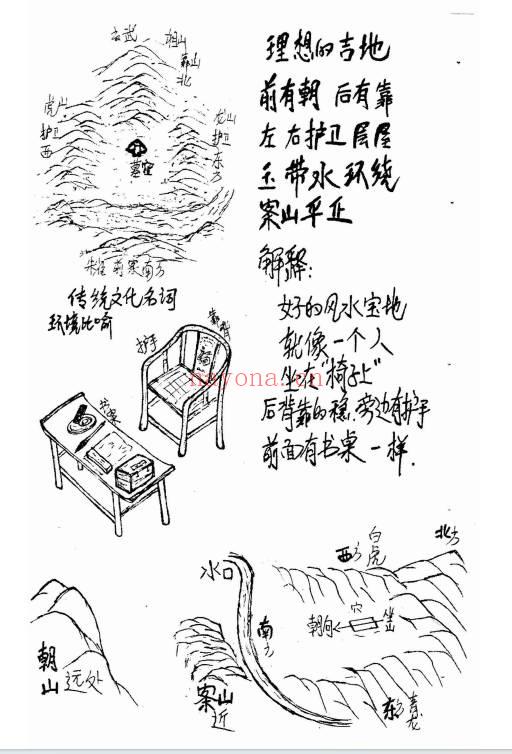 玄武
祖山
靠山
北
虎山
护卫
西
龙山
护卫
东方
墓穴
朱雀 前案 南方
传统文化名词
环境比喻
理想的吉地
前有朝 后有靠
左右护卫层层
玉带水环绕
案山平正
解释:
好的风水宝地
就像一个人
坐在“椅子上”
后背靠的稳.旁边有扶手
前面有书桌一样.
扶手
靠背
nayona.cn
水口
南方
案山
近
朝
山
远处
西方
白虎
北方
穴
朝向
坐山
东方
青龙